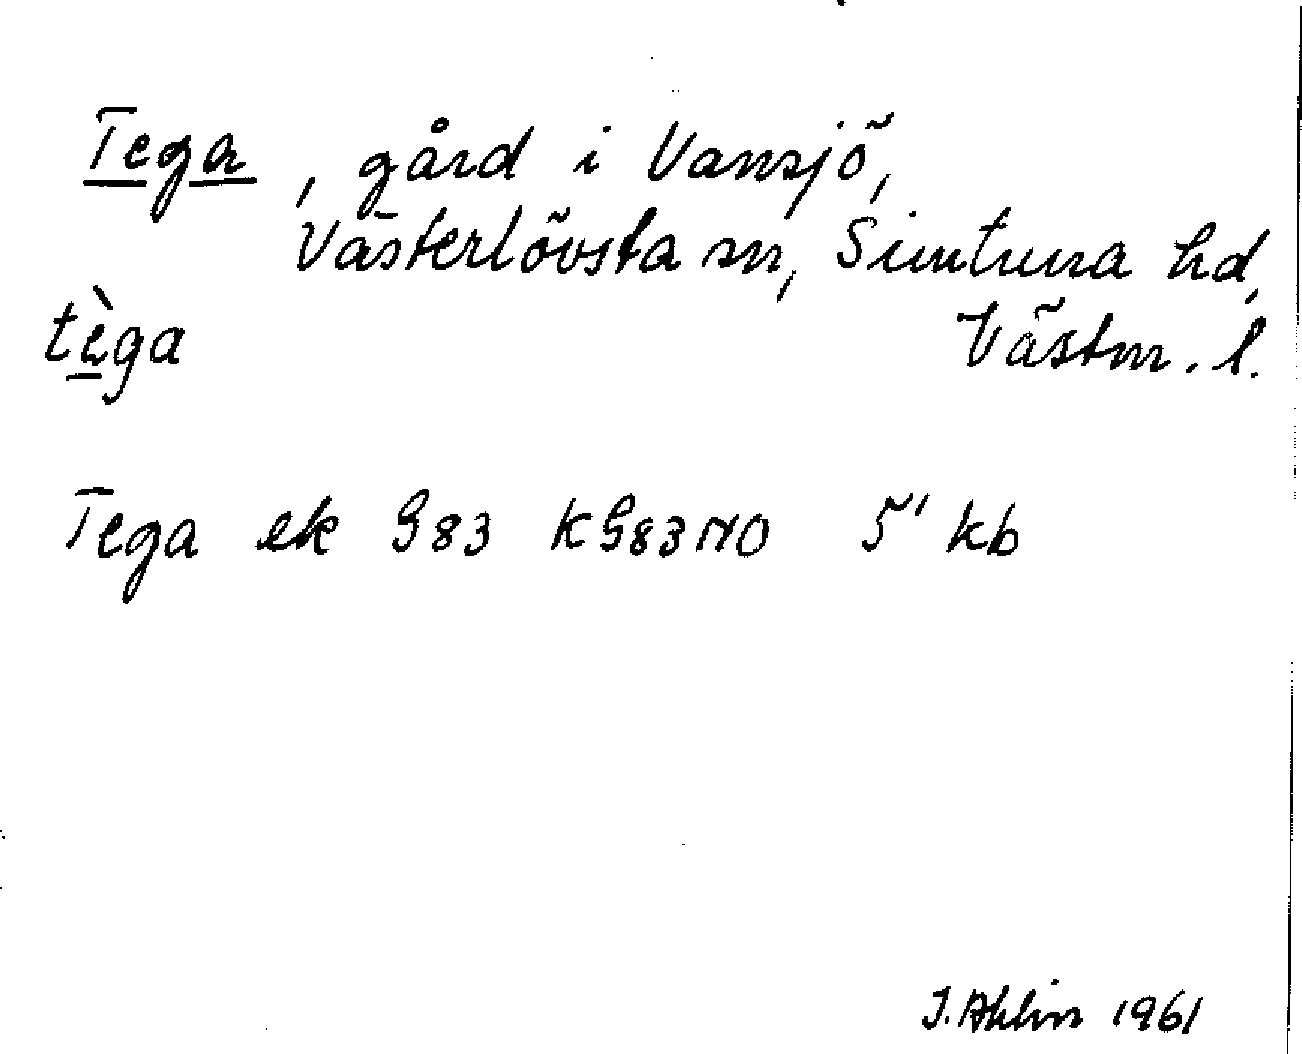 Tega, gård i Vansjö,
Västerlövsta sn, Simtuna hd,
tèga Västm. l.
Tega ek 983 K983NO 5' kb
J. Ahlin 1961